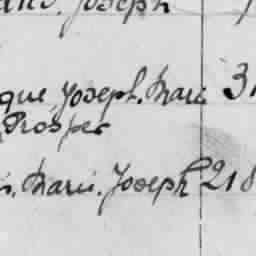 Joseph
que, Joseph. Marie 3
Prosper
Marie. Joseph 218